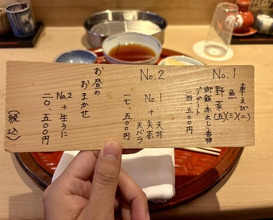 No.1
車えび(二)
魚(三)
野菜(五)
御飯・赤だし・香物
デザート
一四、五〇〇円
No.2
No.1 + 天丼
天茶
天バラ
一七、五〇〇円
お昼の
おまかせ
No.2 + 生うに
二〇、五〇〇円
(税込)